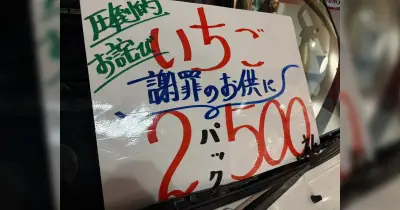 圧倒的
お詫び
いちご
謝罪のお供に
2パック500えん